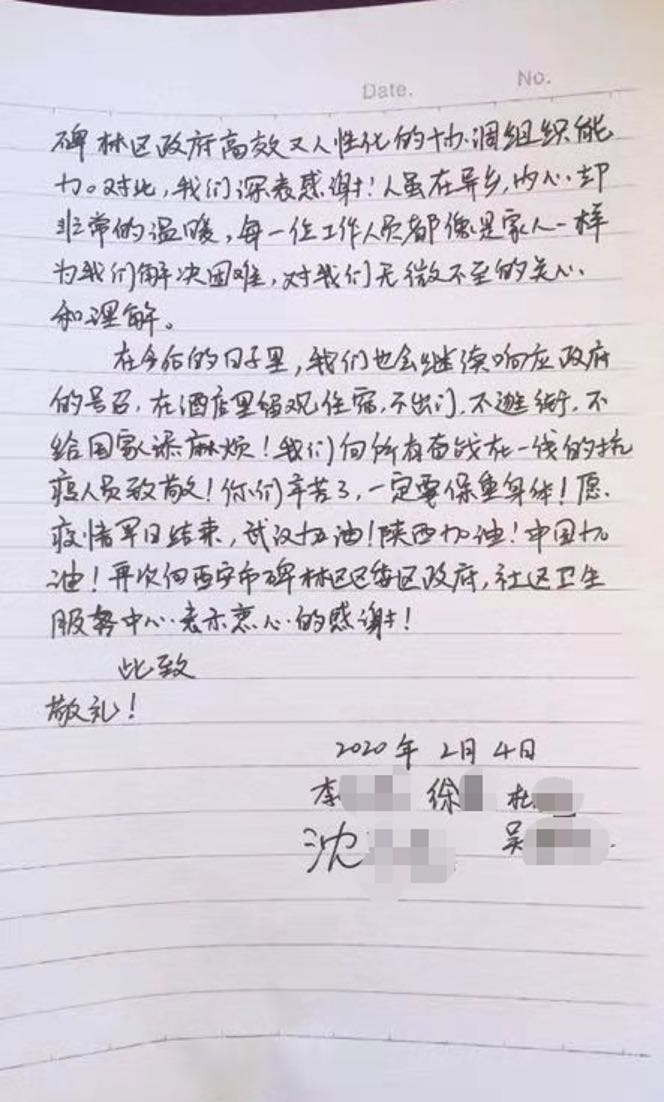 Date.
No.
碑林区政府高效又人性化的协调组织能
力。对此，我们深表感谢！人虽在异乡，内心却
非常的温暖，每一位工作人员都像是家人一样
为我们解决困难，对我们无微不至的关心
和理解。
在今后的日子里，我们也会继续响应政府
的号召，在酒店里留观住宿，不出门，不逛街，不
给国家添麻烦！我们向所有奋战在一线的抗
疫人员致敬！你们辛苦了，一定要保重身体！愿
疫情早日结束，武汉加油！陕西加油！中国加
油！再次向西安市碑林区区委区政府，社区卫生
服务中心表示衷心的感谢！
此致
敬礼！
2020年 2月 4日
李 徐 杜
沈 吴